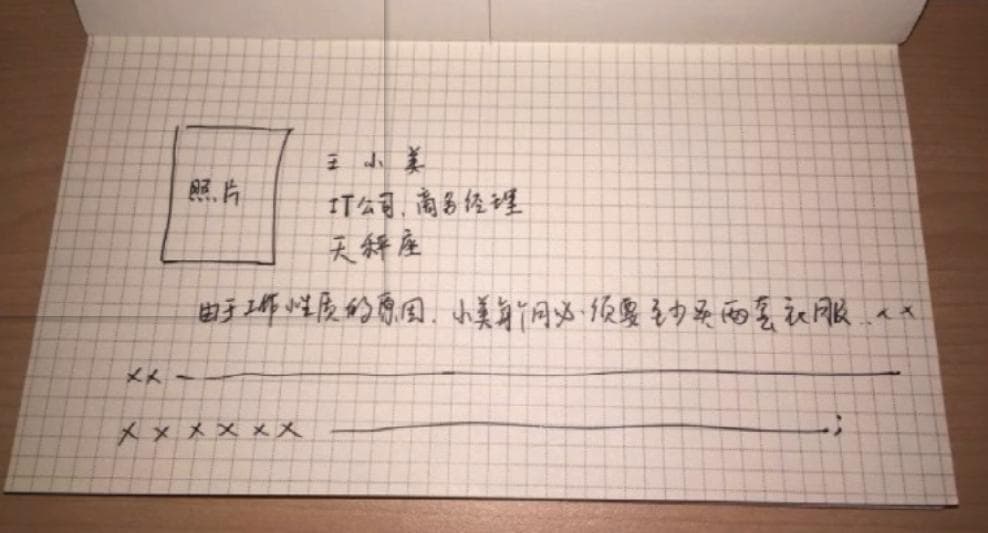 照片
王小美
IT公司,商务经理
天秤座
由于工作性质的原因,小美每个月必须要至少买两套衣服..××
××
××××××